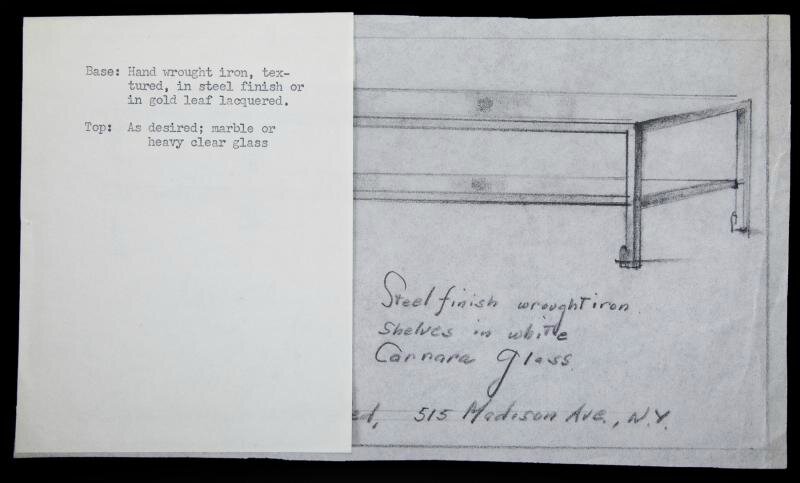 Base: Hand wrought iron, tex-
tured, in steel finish or
in gold leaf lacquered.
Top: As desired; marble or
heavy clear glass
Steel finish wrought iron
shelves in white
Carrara Glass.
ed, 515 Madison Ave., N.Y.